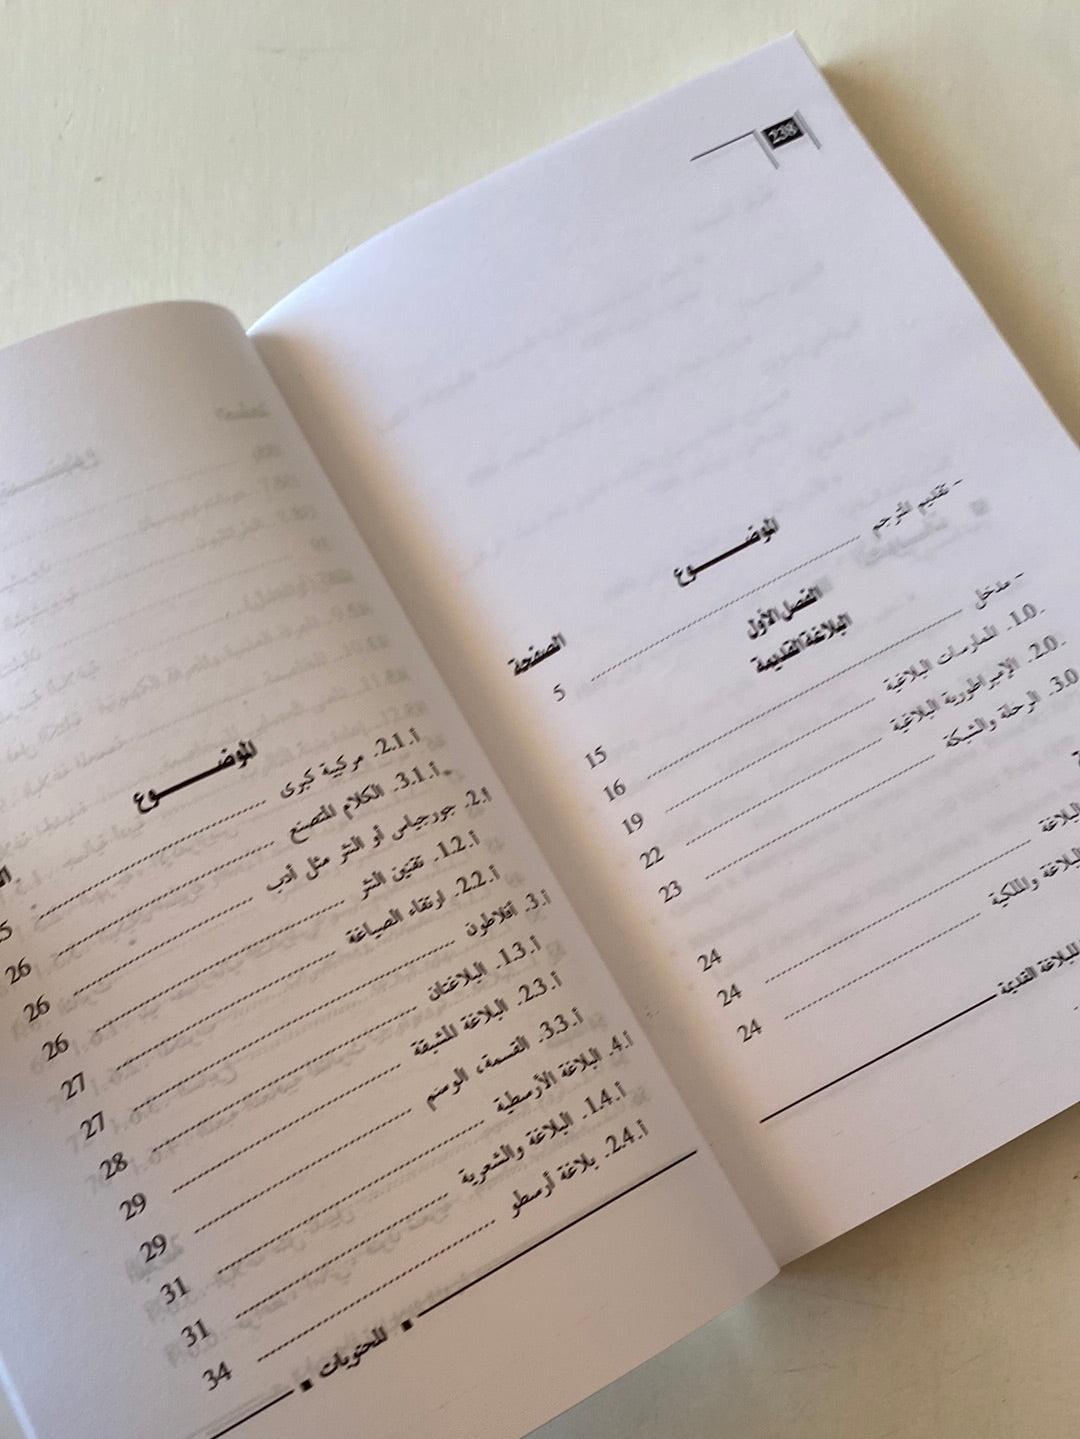 238
الموضـــــوع
الصفحة
- تقديم المترجم ........ 5
الفصل الأول
البلاغة القديمة
- مدخل ........ 15
1.0. الممارسات البلاغية ........ 16
2.0. الإمبراطورية البلاغية ........ 19
3.0. الرحلة والشبكة ........ 22
23
البلاغة ........ 24
البلاغة والملكية ........ 24
24
البلاغة القديمة
الموضـــــوع
أ.2.1. مركبة كبرى
أ.3.1. الكلام المتصنع ........ 26
أ.2. جورجياس أو النثر مثل أدب ........ 26
أ.1.2. تقنين النثر ........ 26
أ.2.2. ارتقاء الصياغة ........ 27
أ.3. أفلاطون ........ 27
أ.1.3. البلاغتان ........ 28
أ.2.3. البلاغة المشبقة ........ 29
أ.3.3. القسمة، الوسم ........ 29
أ.4. البلاغة الأرسطية ........ 31
أ.1.4. البلاغة والشعرية ........ 31
أ.2.4. بلاغة أرسطو ........ 34
المحتويات